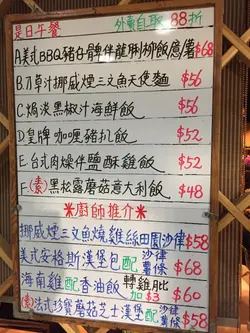 是日午餐 外賣自取 88折
A美式BBQ豬仔骨伴龍脷柳飯/薯 $68
B.凡爾汁挪威煙三文魚天使麵 $56
C.焗淡黑椒汁海鮮飯 $56
D皇牌咖喱豬扒飯 $52
E.台式肉燥伴鹽酥雞飯 $52
F.(素)黑松露蘑菇意大利飯 $48
※廚師推介※
挪威煙三文魚燒雞絲田園沙律 $58
美式安格斯漢堡包配沙律薯條 $68
海南雞配香油飯 轉雞髀加$3 $60
(素)法式珍寶蘑菇芝士漢堡配沙律薯條 $58